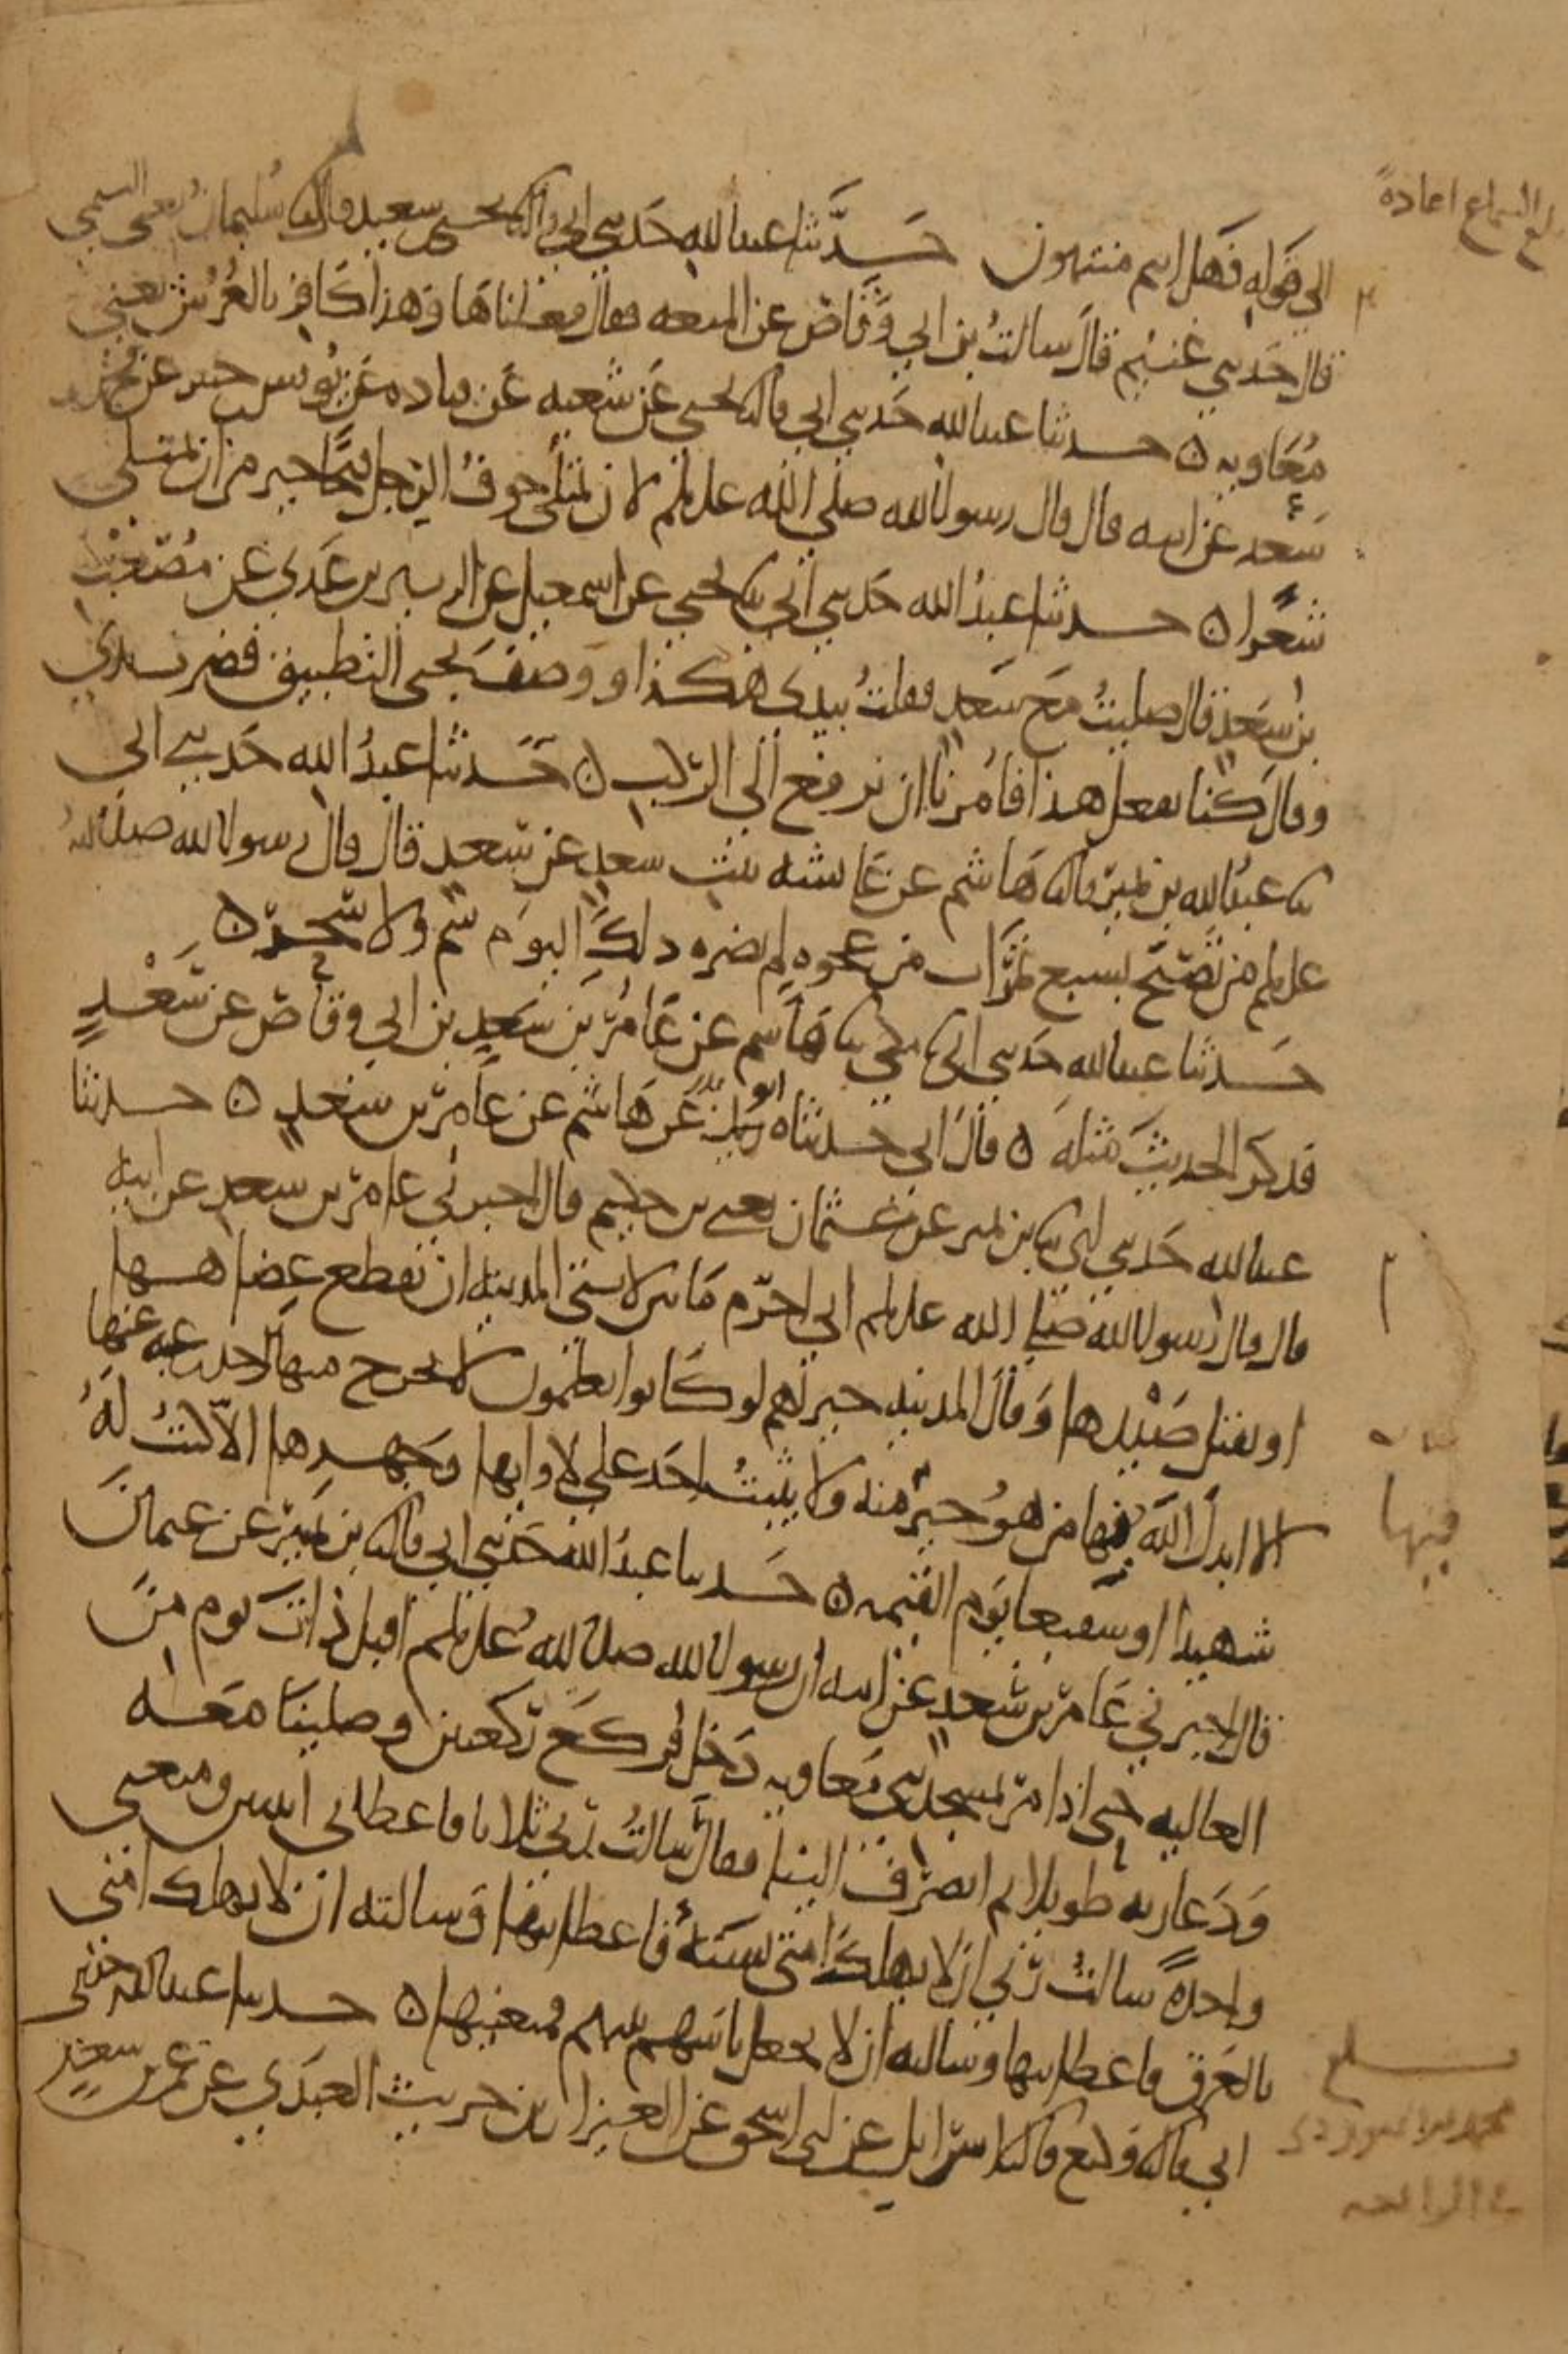 بلغ السماع اعادة
الى قوله فهل انتم منتهون حدثنا عبد الله حدثني ابي قال ثنا يحيى بن سعيد قال ثنا سليمان يعني التيمي
قال حدثني غنيم قال سالت بن ابي وقاص عن المتعه فقال فعلناها وهذا كافر بالعرش يعني
معاويه ه حدثنا عبد الله حدثني ابي قال ثنا يحيى عن شعبه عن قتاده عن يونس بن جبير عن محمد بن
سعد عن ابيه قال قال رسول الله صلى الله عليه وسلم لان يمتلى جوف الرجل قيحا خير من ان يمتلى
شعرا ه حدثنا عبد الله حدثني ابي ثنا يحيى عن اسمعيل عن الزبير بن عدي عن مصعب
بن سعد قال صليت مع سعد فقلت بيدي هكذا ووصف يحيى التطبيق فضرب يدي
وقال كنا نفعل هذا فامرنا ان نرفع الى الركب ه حدثنا عبد الله حدثني ابي
ثنا عبد الله بن نمير قال ثنا هاشم عن عائشه بنت سعد عن سعد قال قال رسول الله صلى الله
عليه وسلم من تصبح بسبع تمرات من عجوه لم يضره ذلك اليوم سم ولا سحر ه
حدثنا عبد الله حدثني ابي ثنا مكي ثنا هاشم عن عامر بن سعد بن ابي وقاص عن سعد
فذكر الحديث مثله ه قال ابي حدثناه ابو بدر عن هاشم عن عامر بن سعد ه حدثنا
عبد الله حدثني ابي ثنا بن نمير عن عثمان يعني بن حكيم قال اخبرني عامر بن سعد عن ابيه
قال قال رسول الله صلى الله عليه وسلم اني احرم ما بين لابتي المدينه ان يقطع عضاهها
او يقتل صيدها وقال المدينه خير لهم لو كانوا يعلمون لا يخرج منها احد رغبه عنها
الا ابدل الله فيها من هو خير منه ولا يثبت احد على لاوائها وجهدها الا كنت له
فيها
شهيدا او شفيعا يوم القيمه ه حدثنا عبد الله حدثني ابي قال ثنا بن نمير عن عثمان
قال اخبرني عامر بن سعد عن ابيه ان رسول الله صلى الله عليه وسلم اقبل ذات يوم من
العاليه حتى اذا مر بمسجد بني معاويه دخل فركع ركعتين وصلينا معه
ودعا ربه طويلا ثم انصرف الينا فقال سالت ربي ثلاثا فاعطاني اثنتين ومنعني
واحدة سالت ربي ان لا يهلك امتي بسنة فاعطانيها وسالته ان لا يهلك امتي
بالغرق فاعطانيها وسالته ان لا يجعل باسهم بينهم فمنعنيها ه حدثنا عبد الله حدثني
ابي قال ثنا وكيع قال ثنا اسرائيل عن ابي اسحق عن العيزار بن حريث العبدي عن عمر بن سعد
بلغ